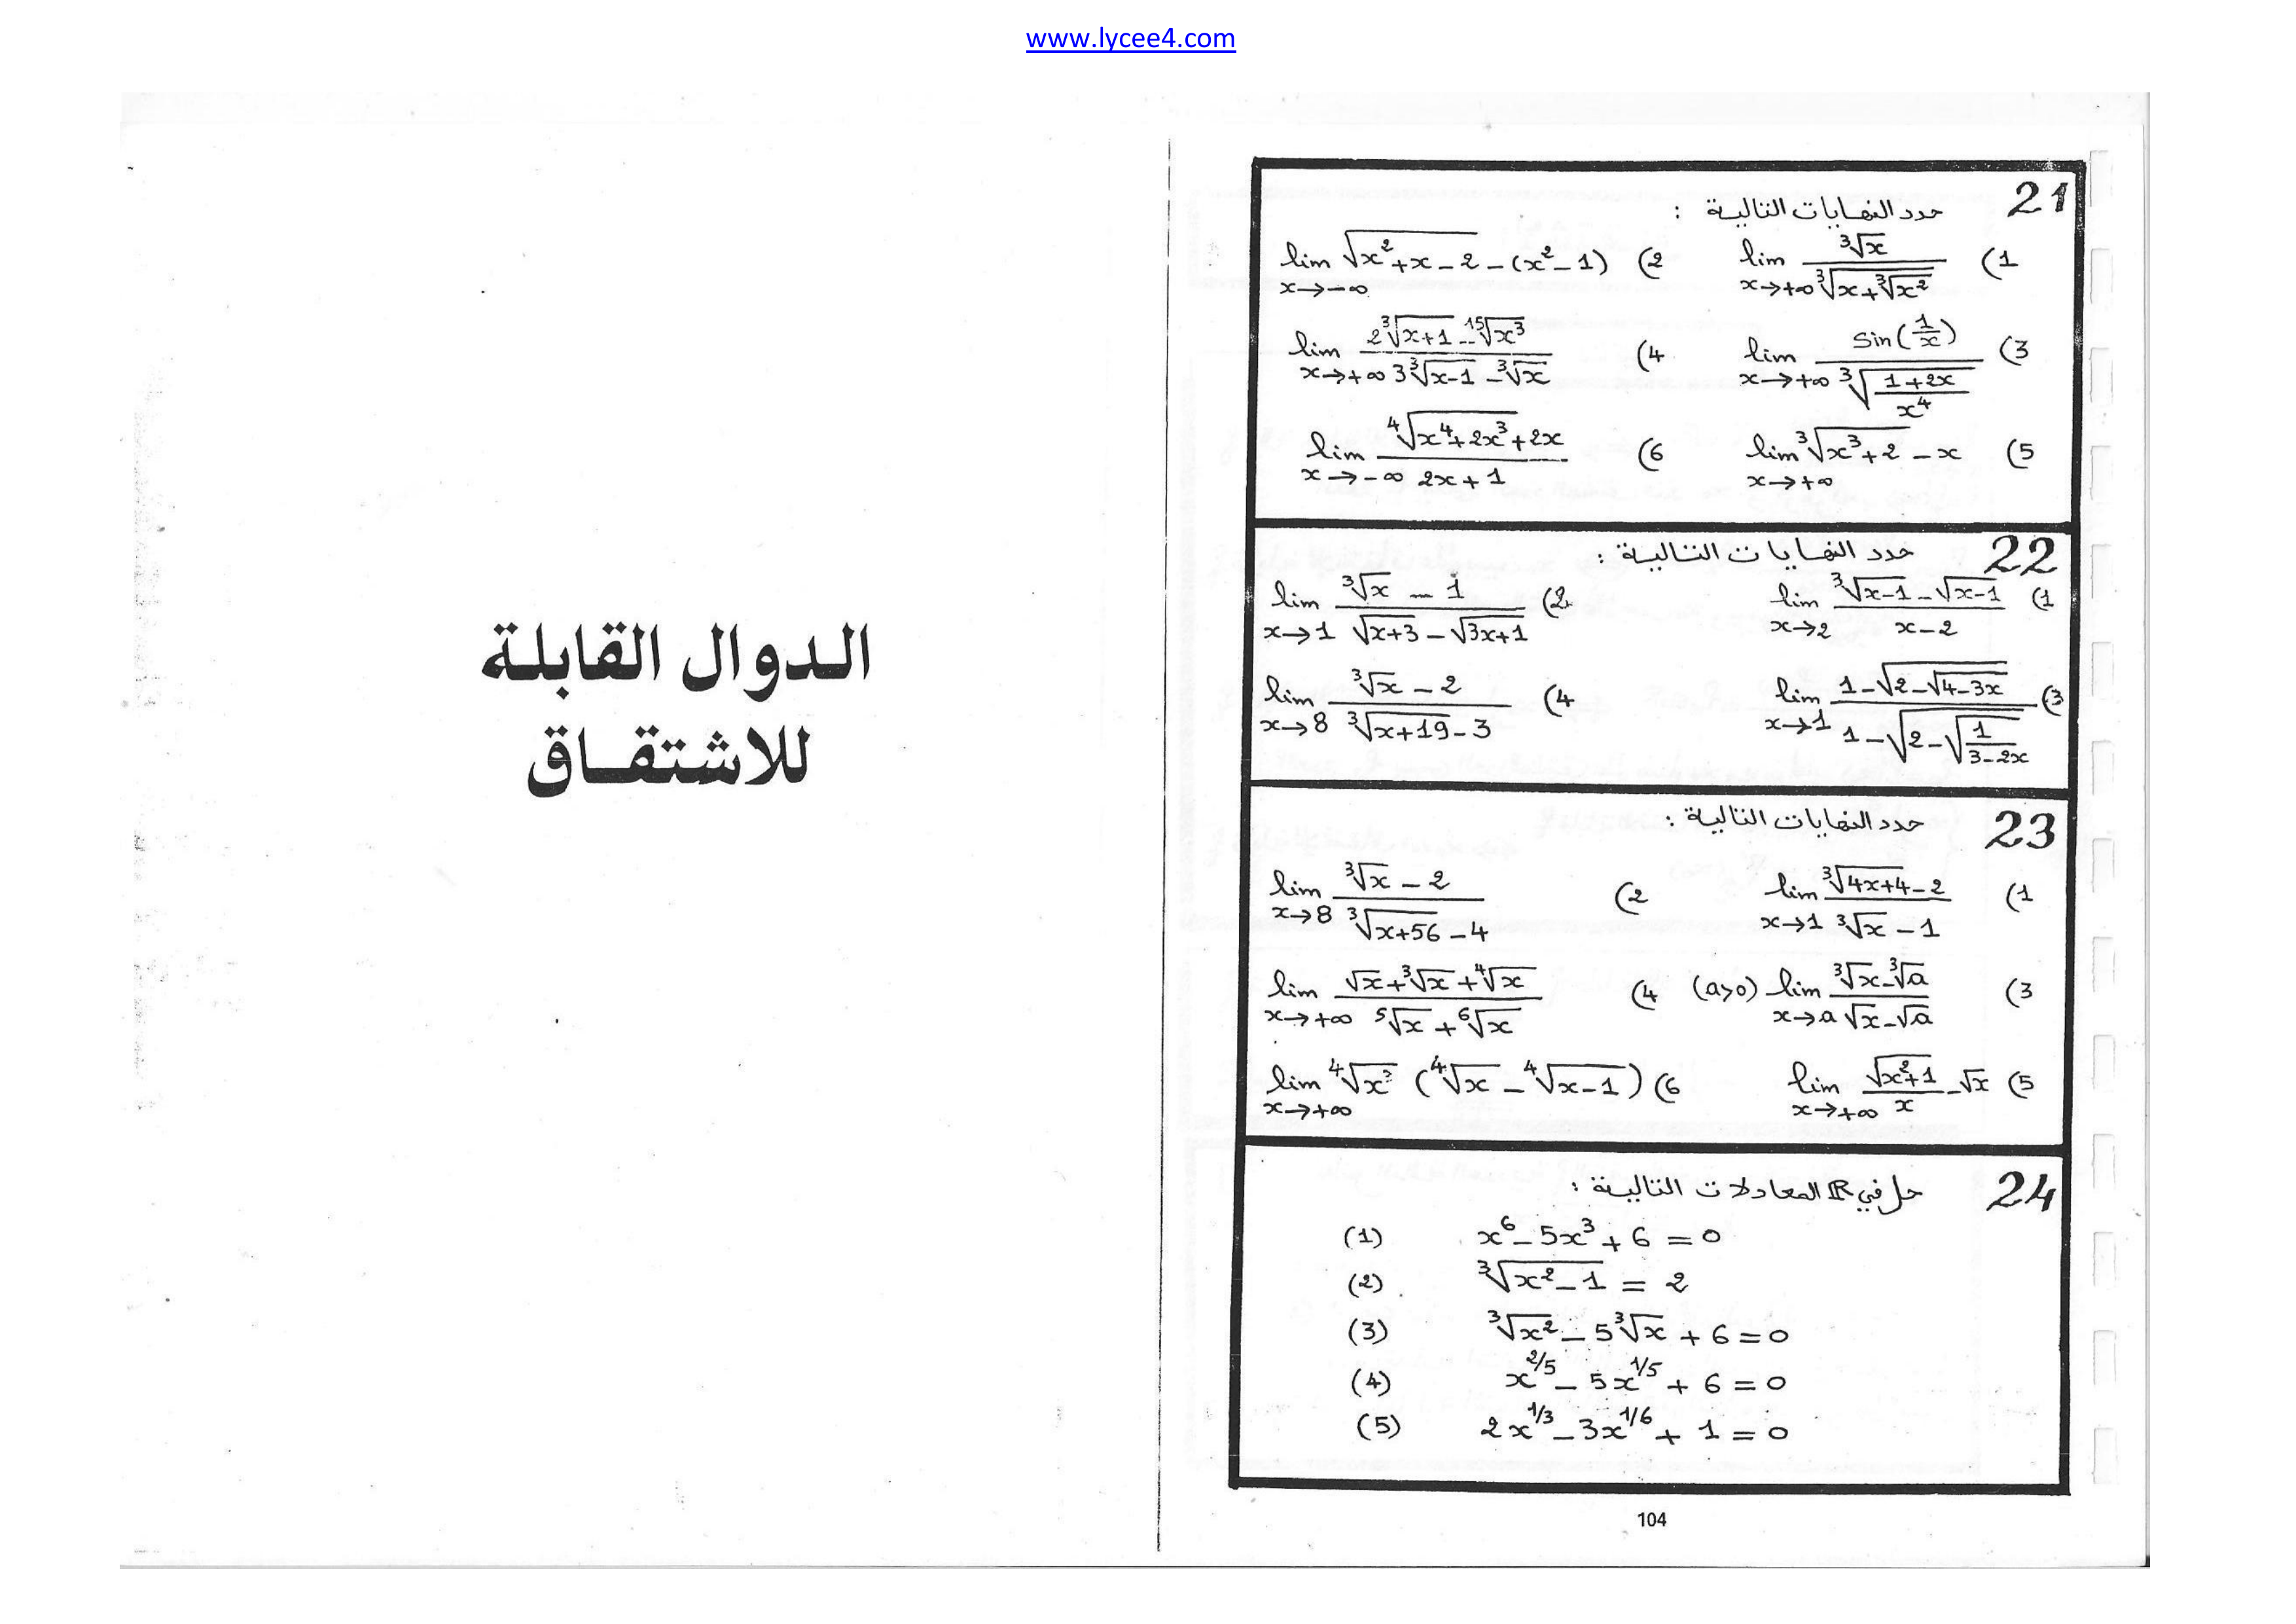 www.lycee4.com
21
حدد النهايات التالية :
1) lim x→+∞ ∛x / ∛(x+∛x²)
2) lim x→-∞ √(x²+x-2) - (x²-1)
3) lim x→+∞ sin(1/x) / ∛((1+2x)/x⁴)
4) lim x→+∞ (2∛(x+1) - ¹⁵√x³) / (3∛(x-1) - ∛x)
5) lim x→+∞ ∛(x³+2) - x
6) lim x→-∞ (⁴√(x⁴+2x³)+2x) / (2x+1)
22
حدد النهايات التالية :
1) lim x→2 (∛(x-1) - √(x-1)) / (x-2)
2) lim x→1 (∛x - 1) / (√(x+3) - √(3x+1))
3) lim x→1 (1-√(2-√(4-3x))) / (1-√(2-√(1/(3-2x))))
4) lim x→8 (∛x - 2) / (∛(x+19) - 3)
23
حدد النهايات التالية :
1) lim x→1 (∛(4x+4) - 2) / (∛x - 1)
2) lim x→8 (∛x - 2) / (∛(x+56) - 4)
3) lim x→a (∛x - ∛a) / (√x - √a) (a>0)
4) lim x→+∞ (√x + ∛x + ⁴√x) / (⁵√x + ⁶√x)
5) lim x→+∞ √(x²+1)/x - √x
6) lim x→+∞ ⁴√x³ (⁴√x - ⁴√(x-1))
24
حل في ℝ المعادلات التالية :
(1) x⁶ - 5x³ + 6 = 0
(2) ∛(x²-1) = 2
(3) ∛x² - 5∛x + 6 = 0
(4) x^2/5 - 5x^1/5 + 6 = 0
(5) 2x^1/3 - 3x^1/6 + 1 = 0
104
الدوال القابلة
للاشتقاق